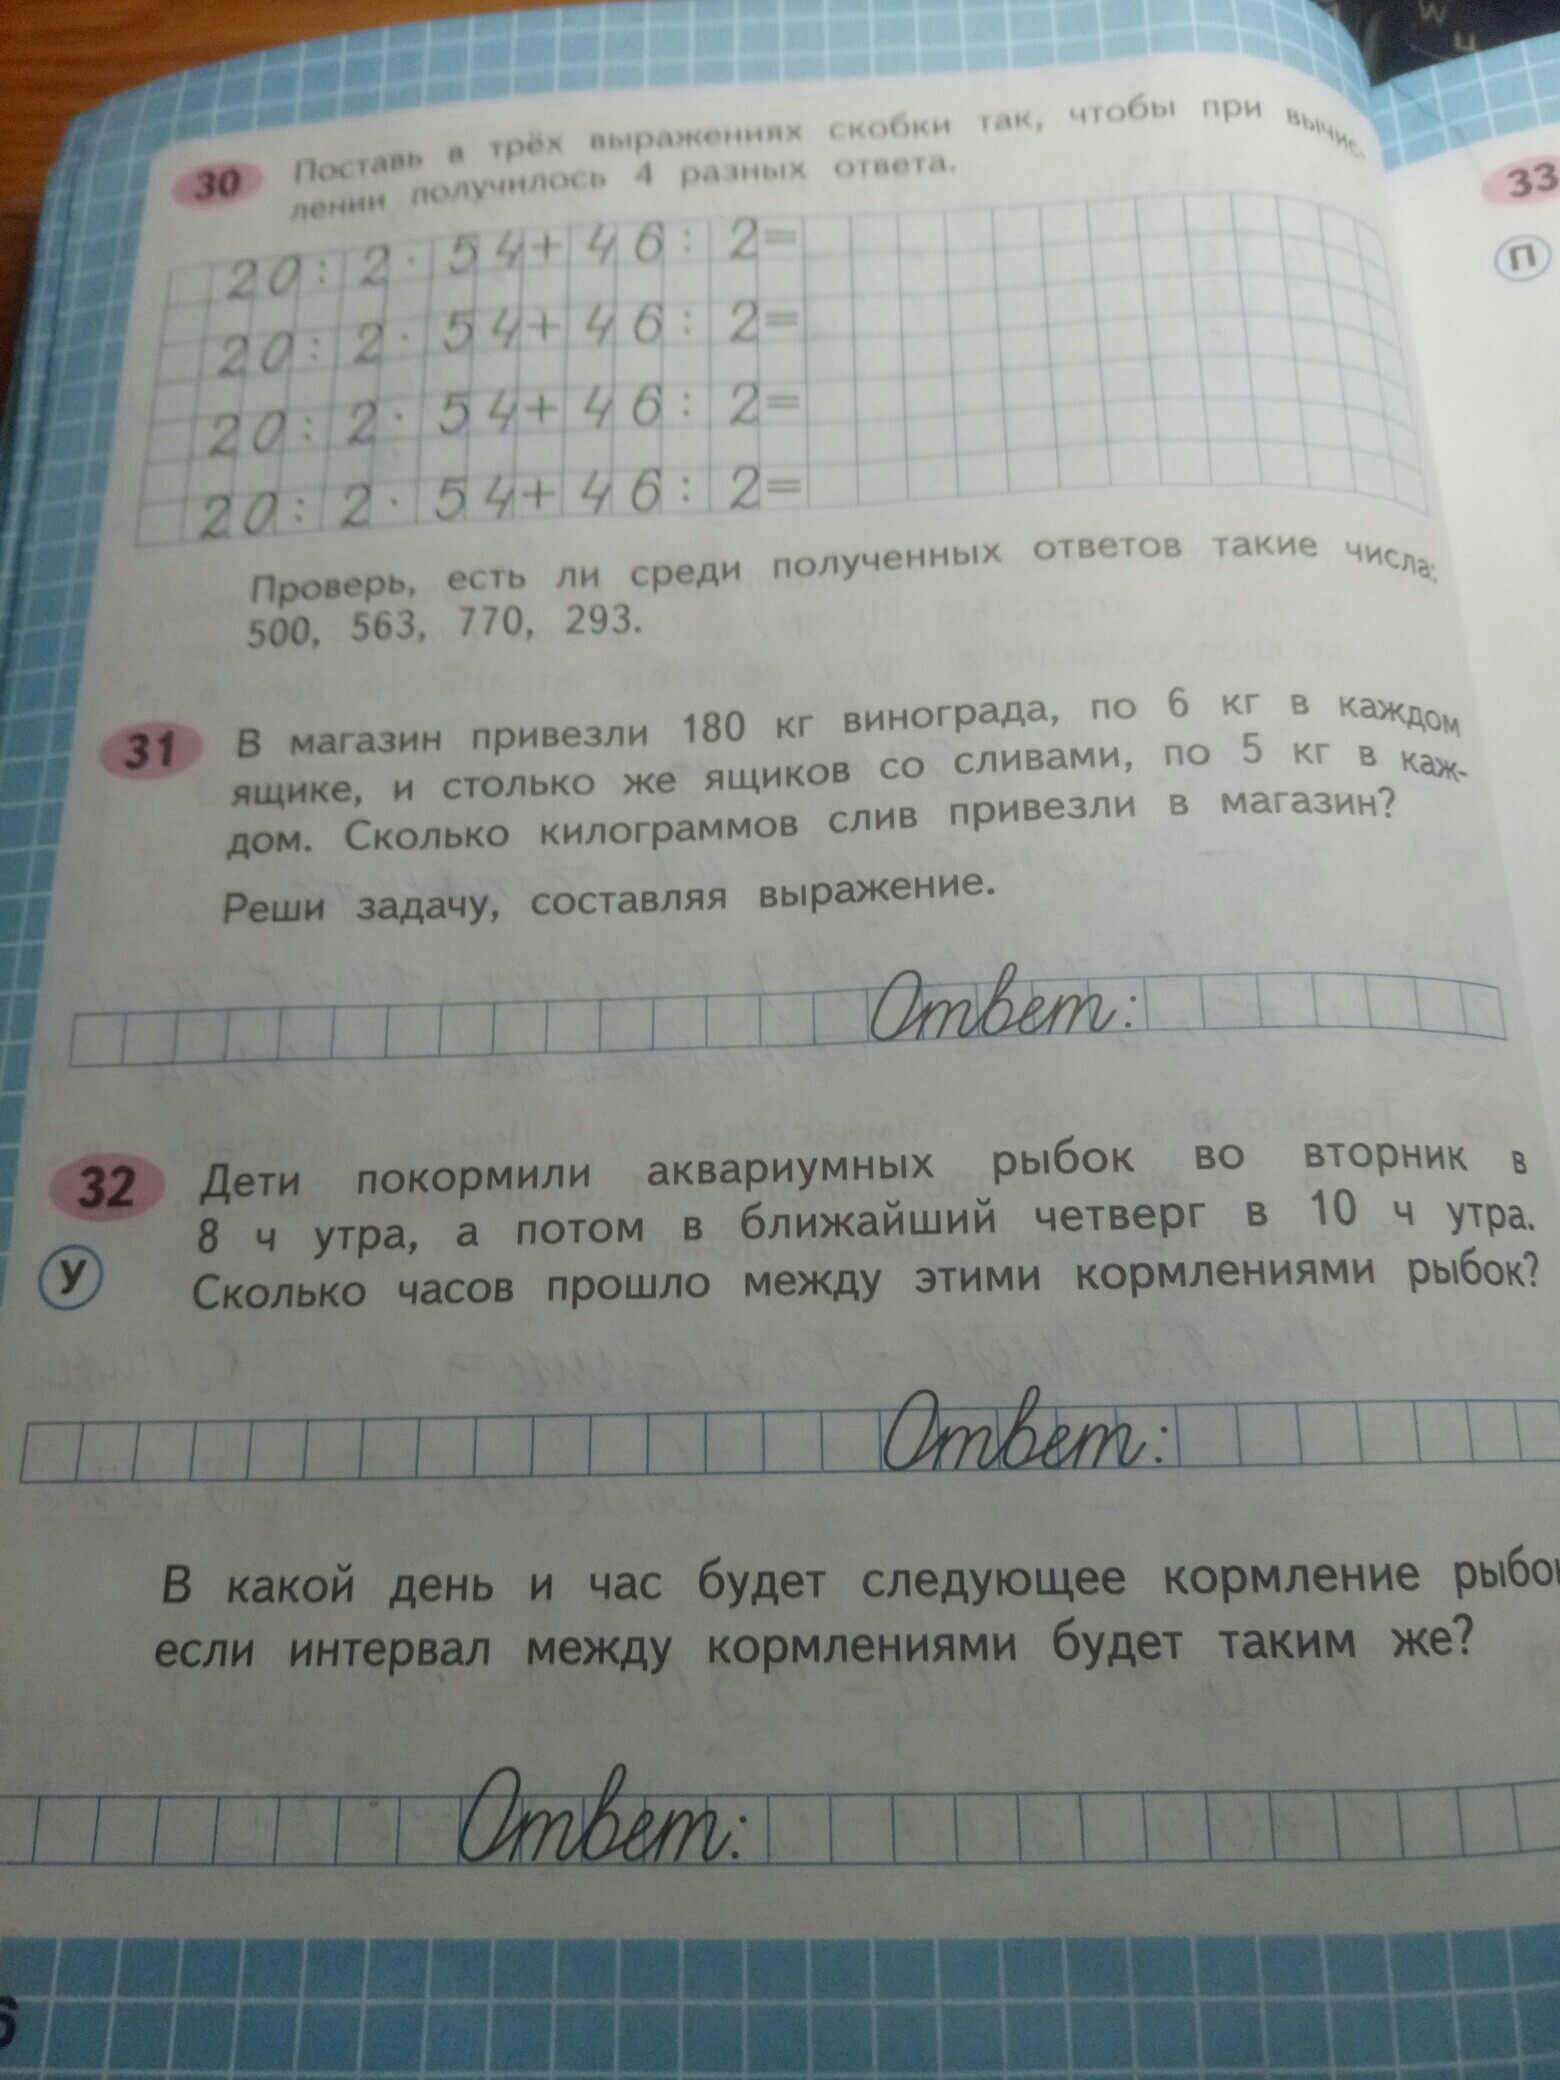 30 Поставь в трёх выражениях скобки так, чтобы при вычис-
лении получилось 4 разных ответа.
20 : 2 · 54 + 46 : 2 =
20 : 2 · 54 + 46 : 2 =
20 : 2 · 54 + 46 : 2 =
20 : 2 · 54 + 46 : 2 =
Проверь, есть ли среди полученных ответов такие числа:
500, 563, 770, 293.
31 В магазин привезли 180 кг винограда, по 6 кг в каждом
ящике, и столько же ящиков со сливами, по 5 кг в каж-
дом. Сколько килограммов слив привезли в магазин?
Реши задачу, составляя выражение.
Ответ:
32 Дети покормили аквариумных рыбок во вторник в
У 8 ч утра, а потом в ближайший четверг в 10 ч утра.
Сколько часов прошло между этими кормлениями рыбок?
Ответ:
В какой день и час будет следующее кормление
если интервал между кормлениями будет таким же?
Ответ:
6
33
П
W
Ц